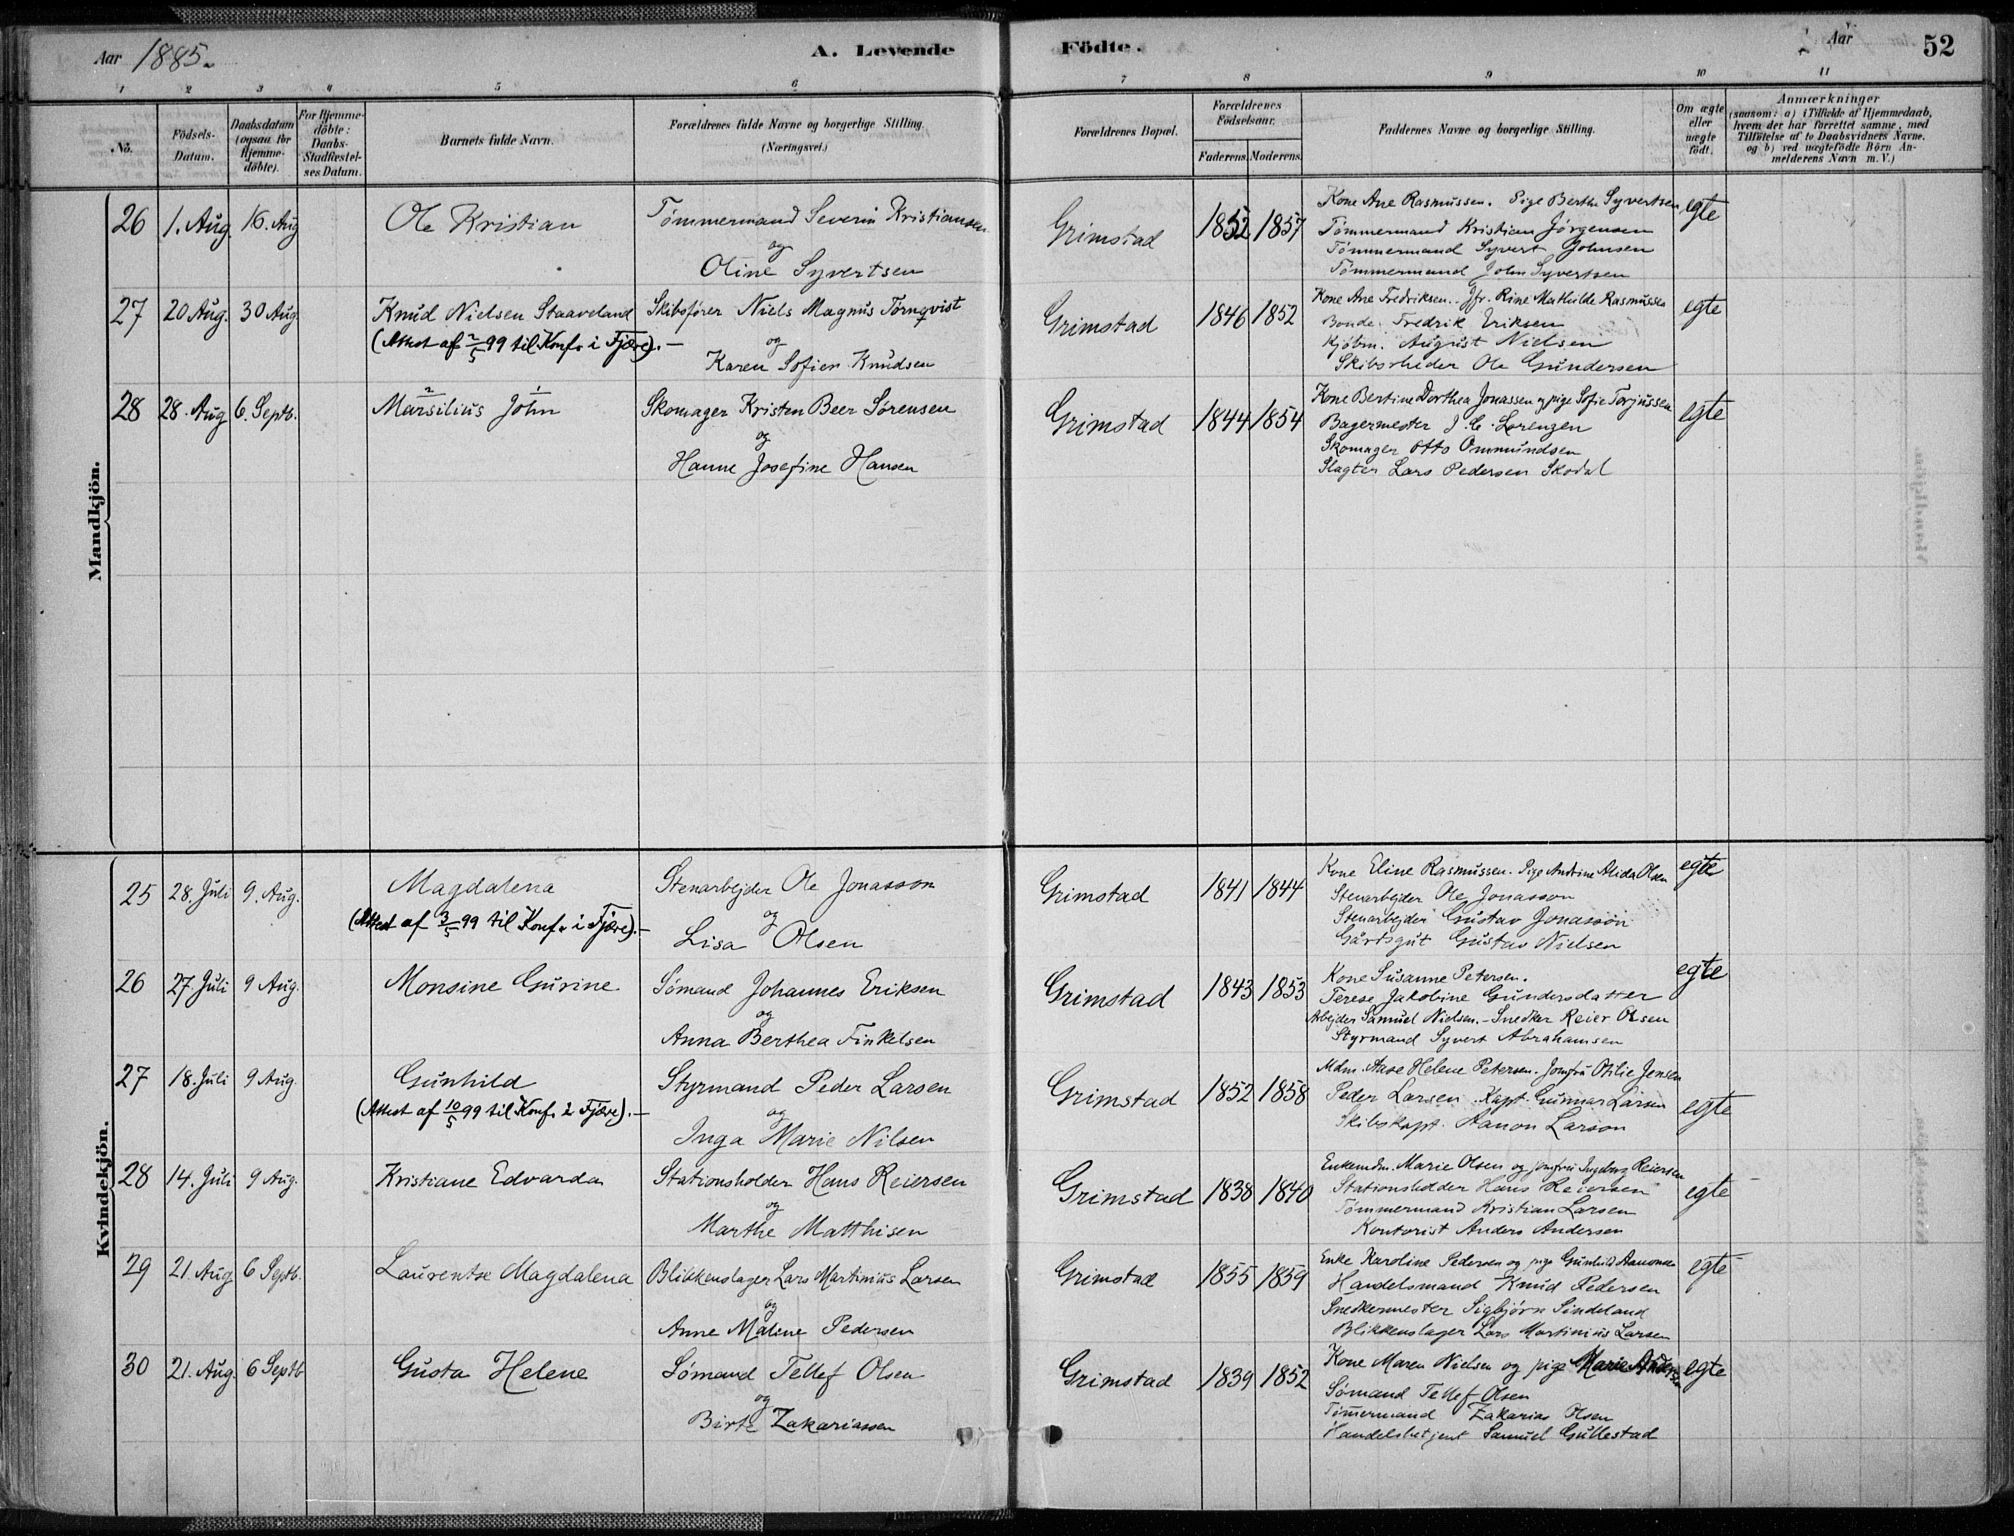 Aar 1885.
A. Levende Födte.
Aar
52
1 2 3 4 5 6 7 8 9 10 11
No.
Födsels-
Datum.
Daabsdatum
(ogsaa for
Hjemme-
döbte).
For Hjemme-
döbte:
Daabs-
Stadfæstel-
ses Datum.
Barnets fulde Navn.
Forældrenes fulde Navne og borgerlige Stilling.
(Næringsvei.)
Forældrenes Bopæl.
Forældrenes
Födselsaar.
Faderens. Moderens.
Faddernes Navne og borgerlige Stilling.
Om ægte
eller
uægte
födt.
Anmærkninger
(saasom: a) i Tilfælde af Hjemmedaab,
hvem der har forrettet samme, med
Tilföielse af to Daabsvidners Navne,
og b) ved uægtefödte Börn An-
melderens Navn m. V.)
Mandkjön.
26 1. Aug. 16. Aug Ole Kristian
Tømmermand Severin Kristiansen
og
Oline Syvertsen
Grimstad 1852 1857
Kone Ane Rasmussen. Pige Berthe Syvertsen
Tømmermand Kristian Jørgensen
Tømmermand Syvert Johnsen
Tømmermand John Syvertsen
egte
27 20 Aug. 30 Aug. Knud Nielsen Staaveland
(Attest af 2/5 99 til Konf. i Fjære).—
Skibsfører Niels Magnus Tørnqvist
og
Karen Sofien Knudsen
Grimstad 1846 1852
Kone Ane Fredriksen. Jfr. Rine Mathilde Rasmussen
Bonde Fredrik Eriksen
Kjöbm. August Nielsen
Skibsrheder Ole Gundersen
egte
28 28. Aug 6. Septb. Marsilius John
2 1
Skomager Kristen Beer Sørensen
og
Hanne Josefine Hansen
Grimstad 1844 1854
Kone Bertine Dorthea Jonassen og pige Sofie Torjussen
Bagermester J. C. Lorenzen
Skomager Otto Ommundsen
Slagter Lars Pedersen Skodal
egte
Kvindekjön.
25 28. Juli 9. Aug. Magdalena
(Attest af 3/5 99 til Konf. i Fjære).—
Stenarbejder Ole Jonasson
og
Lisa Olsen
Grimstad 1841 1844
Kone Eline Rasmussen. Pige Andrine Alida Olsen
Stenarbejder Ole Jonasson
Stenarbejder Gustav Jonasson
Gårdsgut Gustav Nielsen
egte
26 27. Juli 9 Aug. Monsine Gurine
Sømand Johannes Eriksen
og
Anna Berthea Finkelsen
Grimstad 1843 1853
Kone Susanne Petersen.
Terese Jakobine Gundersdatter
Arbejder Samuel Nielsen. – Snedker Reier Olsen
Styrmand Syvert Abrahamsen
egte
27 18. Juli 9 Aug. Gunhild
(Attest af 10/5 99 til Konf. i Fjære).—
Styrmand Peder Larsen
og
Inga Marie Nilsen
Grimstad 1852 1858
Mdm. Aase Helene Petersen. Jomfru Otilie Jensen
Peder Larsen. Kapt. Gunnar Larsen
Skibskapt. Aanon Larson
egte
28 14. Juli 9 Aug. Kristiane Edvarda
Stationsholder Hans Reiersen
og
Marthe Matthisen
Grimstad 1838 1840
Enkemdm. Marie Olsen og jomfru Ingeborg Reiersen
Stationsholder Hans Reiersen
Tømmermand Kristian Larsen
Kontorist Anders Andersen
egte
29 21. Aug 6 Septb. Laurentse Magdalena
Blikkenslager Lars Martinius Larsen
og
Anne Maline Pedersen
Grimstad 1855 1859
Enke Karoline Pedersen og pige Gunhild Aanonsen
Handelsmand Knud Pedersen
Snedkermester Sigbjørn Sindeland
Blikkenslager Lars Martinius Larsen
egte
30 21. Aug. 6 Septb Gusta Helene
Sømand Tellef Olsen
og
Birte Zakariassen
Grimstad 1839 1852
Kone Maren Nielsen og pige Marie Andersen
Sømand Tellef Olsen
Tømmermand Zakarias Olsen
Handelsbetjent Samuel Gullestad
egte